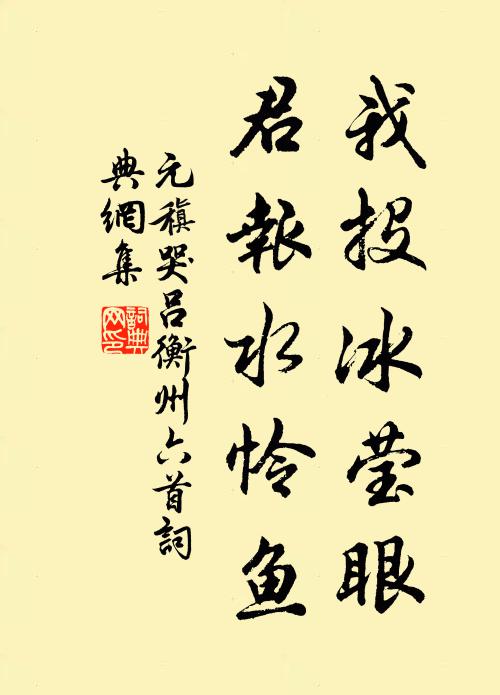 我投冰莹眼
君報水怜鱼
元稹哭吕衡州六首詞
典網集
詞典网印